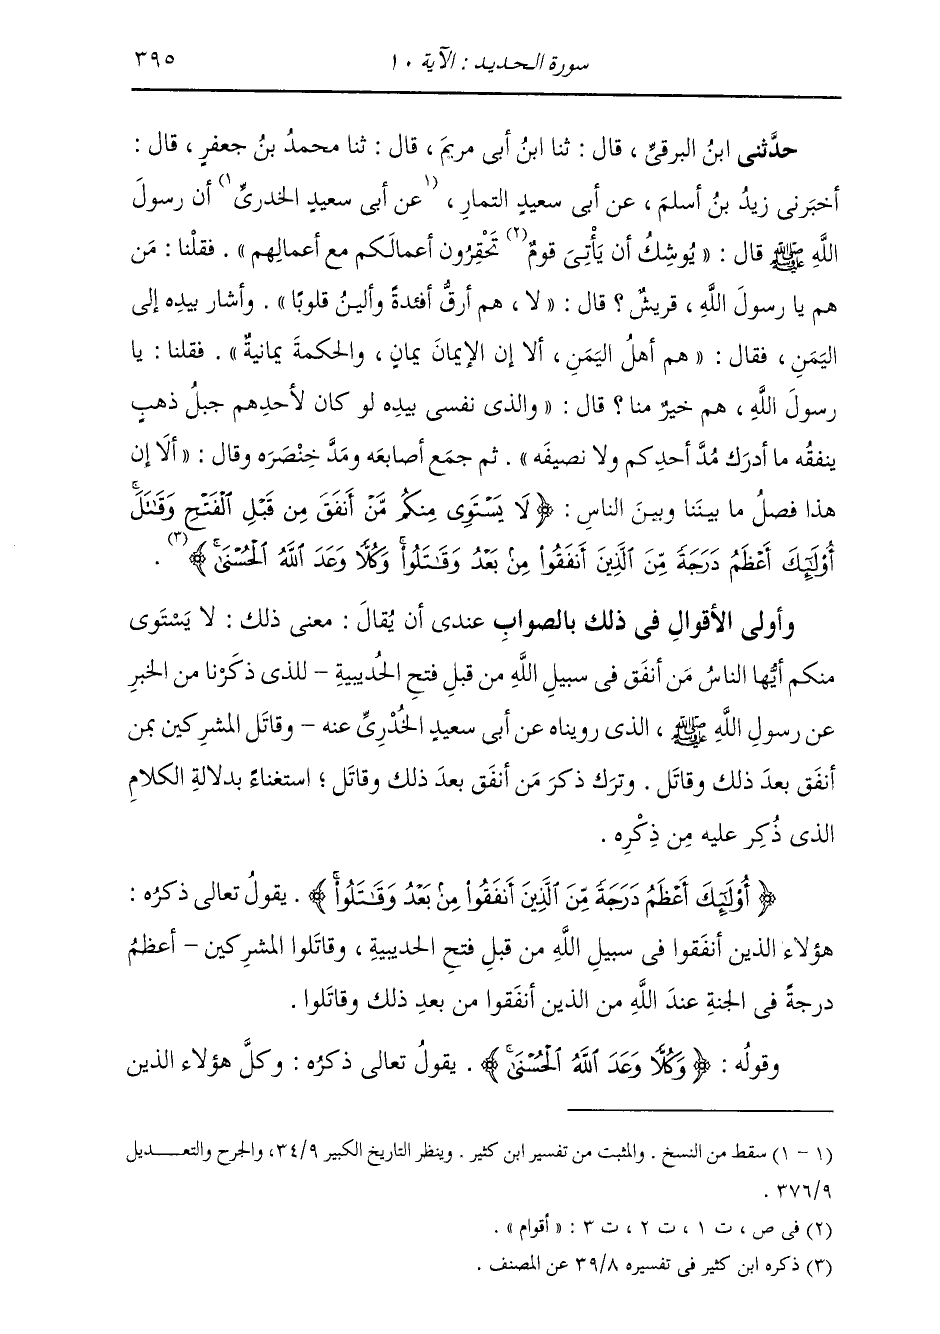 سورة الحديد : الآية ١٠ ٣٩٥
حدَّثنى ابنُ البرقىِّ ، قال : ثنا ابنُ أبى مريمَ ، قال : ثنا محمدُ بنُ جعفرٍ ، قال :
أخبَرنى زيدُ بنُ أسلمَ ، عن أبى سعيدٍ التمارِ ، (١عن أبى سعيدٍ الخدرىِّ١) أن رسولَ
اللَّهِ ﷺ قال : « يُوشِكُ أن يَأْتِىَ قومٌ(٢) تَحْقِرُون أعمالَكم مع أعمالِهم » . فقلْنا : مَن
هم يا رسولَ اللَّهِ ، قريشٌ ؟ قال : « لا ، هم أرقُّ أفئدةً وألينُ قلوبًا » . وأشار بيدِه إلى
اليَمَنِ ، فقال : « هم أهلُ اليَمَنِ ، ألا إن الإيمانَ يمانٍ ، والحكمةَ يمانيةٌ » . فقلنا : يا
رسولَ اللَّهِ ، هم خيرٌ منا ؟ قال : « والذى نفسى بيدِه لو كان لأحدِهم جبلُ ذهبٍ
ينفقُه ما أدرَك مُدَّ أحدِكم ولا نصيفَه » . ثم جمَع أصابعَه ومَدَّ خِنْصَرَه وقال : « ألَا إن
هذا فصلُ ما بينَنا وبينَ الناسِ : ﴿ لَا يَسْتَوِى مِنكُم مَّنْ أَنفَقَ مِن قَبْلِ ٱلْفَتْحِ وَقَٰتَلَۚ
أُوْلَٰٓئِكَ أَعْظَمُ دَرَجَةً مِّنَ ٱلَّذِينَ أَنفَقُوا۟ مِنۢ بَعْدُ وَقَٰتَلُوا۟ۚ وَكُلًّا وَعَدَ ٱللَّهُ ٱلْحُسْنَىٰۚ ﴾(٣) .
وأولى الأقوالِ فى ذلك بالصوابِ عندى أن يُقالَ : معنى ذلك : لا يَسْتَوى
منكم أيُّها الناسُ مَن أنفَق فى سبيلِ اللَّهِ من قبلِ فتحِ الحُديبيةِ – للذى ذكَرْنا من الخبرِ
عن رسولِ اللَّهِ ﷺ ، الذى رويناه عن أبى سعيدٍ الخُدْرِىِّ عنه – وقاتَل المشركين بمن
أنفَق بعدَ ذلك وقاتَل . وترَك ذكرَ مَن أنفَق بعدَ ذلك وقاتَل ؛ استغناءً بدلالةِ الكلامِ
الذى ذُكِر عليه مِن ذِكْرِه .
﴿ أُوْلَٰٓئِكَ أَعْظَمُ دَرَجَةً مِّنَ ٱلَّذِينَ أَنفَقُوا۟ مِنۢ بَعْدُ وَقَٰتَلُوا۟ۚ ﴾ . يقولُ تعالى ذكرُه :
هؤلاء الذين أنفَقوا فى سبيلِ اللَّهِ من قبلِ فتحِ الحديبيةِ ، وقاتَلوا المشركين – أعظمُ
درجةً فى الجنةِ عندَ اللَّهِ من الذين أنفَقوا من بعدِ ذلك وقاتَلوا .
وقولُه : ﴿ وَكُلًّا وَعَدَ ٱللَّهُ ٱلْحُسْنَىٰۚ ﴾ . يقولُ تعالى ذكرُه : وكلَّ هؤلاء الذين
(١ – ١) سقط من النسخ . والمثبت من تفسير ابن كثير . وينظر التاريخ الكبير ٣٤/٩، والجرح والتعـــديل
٣٧٦/٩ .
(٢) فى ص ، ت ١ ، ت ٢ ، ت ٣ : « أقوام » .
(٣) ذكره ابن كثير فى تفسيره ٣٩/٨ عن المصنف .